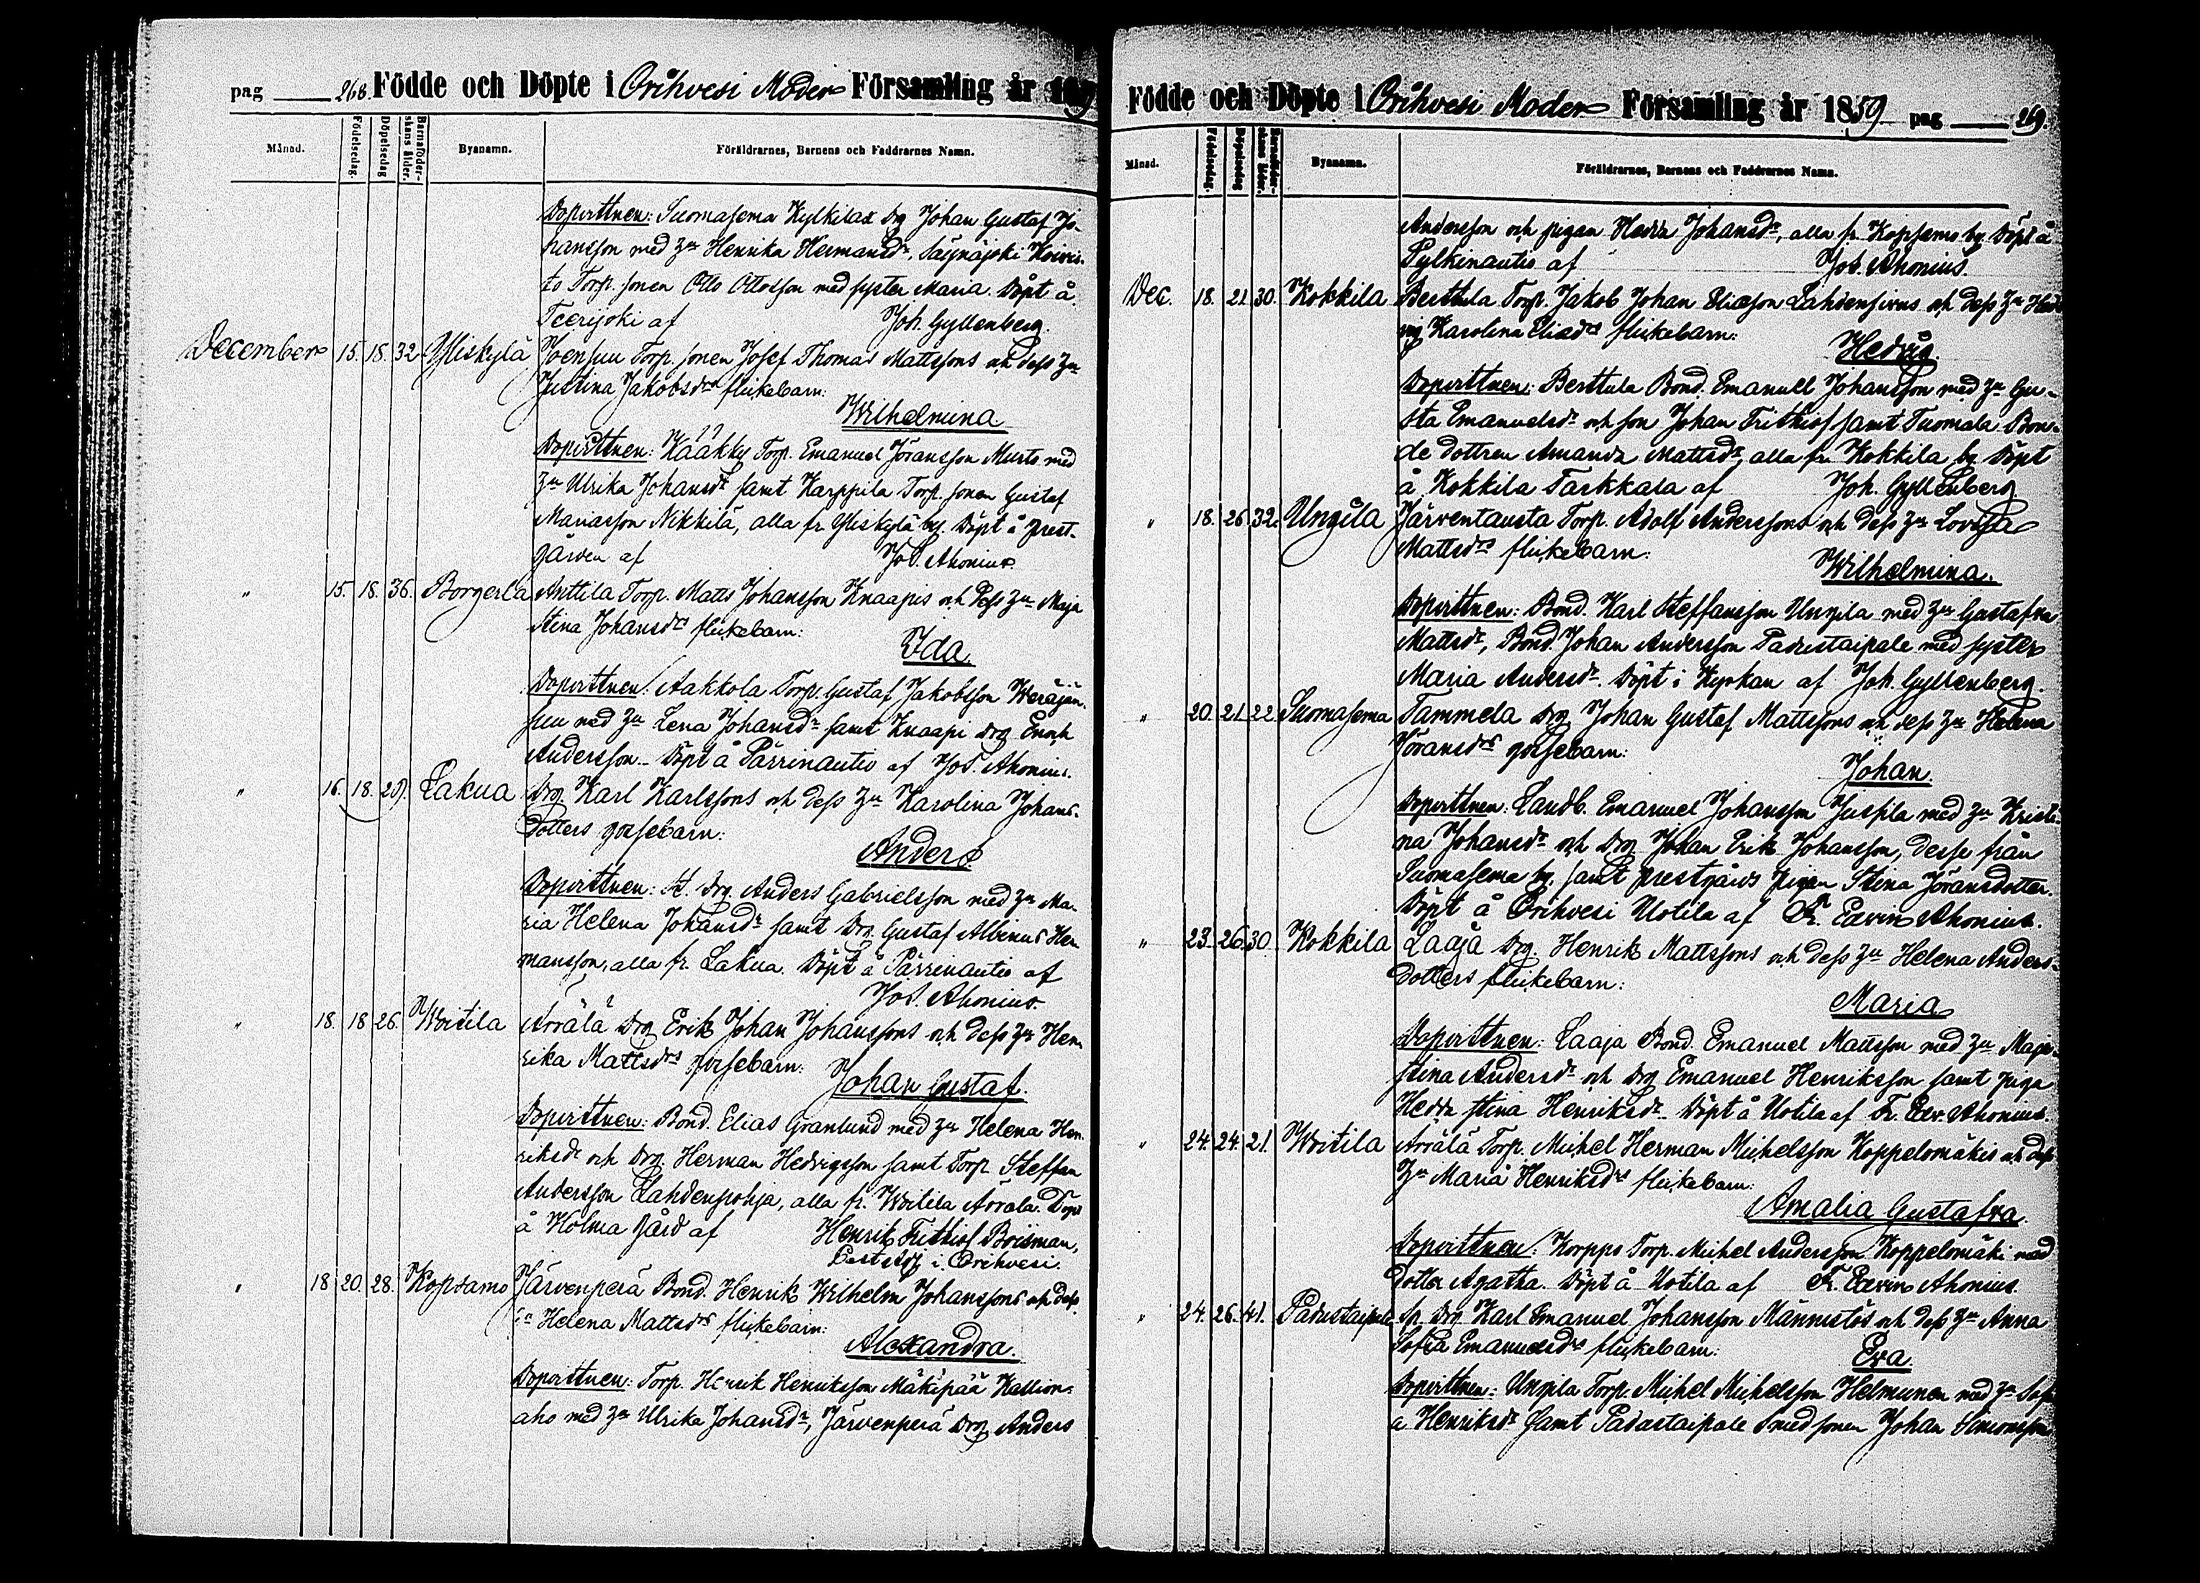 pag 268. Födde och Döpte i Orihvesi Moder Församling år 1859
Månad. Födelsedag. Döpelsedag Barnaföderskans ålder. Byanamn. Föräldrarnes, Barnens och Faddrarnes Namn.
Dopvittnen: Suomasema Kylkilax Drg Johan Gustaf Jo-
hansson med hu Henrika Hermansdr, Säynäjoki Koivis-
to Torp. sonen Otto Ottosson med syster Maria. Döpt å
Teerijoki af Joh. Gyllenberg.
December 15. 18. 32. Yliskylä Joensuu Torp. sonen Josef Thomas Mattssons och dess hu
Justina Jakobsdrs flickebarn:
Wilhelmina
Dopvittnen: Kääkky Torp. Emanuel Jöransson Murto med
hu Ulrika Johansdr samt Karppila Torp. sonen Gustaf
Mariasson Nikkilä, alla fr. Yliskylä by. Döpt å prest-
gården af Jos. Ahonius.
" 15. 18. 36. Borgerla Anttila Torp. Matts Johansson Knaapis och dess hu Maja
Stina Johansdrs flickebarn:
Ida.
Dopvittnen: Aakkola Torp. Gustaf Jakobsson Weräjän-
suu med hu Lena Johansdr samt Knaapi Drg Enoch
Andersson. Döpt å Pärrinautio af Jos. Ahonius.
" 16. 18. 29. Lakua Drg. Karl Karlssons och dess hu Karolina Johans-
dotters gossebarn:
Anders
Dopvittnen: St. Drg. Anders Gabrielsson med hu Ma-
ria Helena Johansdr samt Drg. Gustaf Albinus Her-
mansson, alla fr. Lakua. Döpt å Pärrinautio af
Jos. Ahonius.
" 18. 18 26. Woitila Arrälä Drg Erik Johan Johanssons och dess hu Hen-
rika Mattsdrs gossebarn:
Johan Gustaf.
Dopvittnen: Bond. Elias Granlund med hu Helena Hen-
riksdr och Drg. Herman Hedvigsson samt Torp. Steffan
Andersson Lahdenpohja, alla fr. Woitila Arrälä. Döpt
å Holma gård af Henrik Frithiof Boisman,
Past. Adj. i Orihvesi.
" 18 20. 28. Kopsamo Järvenperä Bond. Henrik Wilhelm Johanssons och dess
hu Helena Mattsdrs flickebarn:
Alexandra.
Dopvittnen: Torp. Henrik Henriksson Mäkipää Kallion-
aho med hu Ulrika Johansdr, Järvenperä Drg Anders
Födde och Döpte i Orihvesi Moder Församling år 1859 pag 269.
Månad. Födelsedag. Döpelsedag Barnaföderskans ålder. Byanamn. Föräldrarnes, Barnens och Faddrarnes Namn.
Andersson och pigan Hedda Johansdr, alla fr. Kopsamo by. Döpt å
Pylkinautio af Jos. Ahonius.
Dec. 18. 21 30. Kokkila Berttula Torp. Jakob Johan Eliasson Lahdensivus och dess hu Hed-
vig Karolina Eliaedrs flickebarn:
Hedvig.
Dopvittnen: Berttula Bond. Emanuel Johansson med hu Gu-
sta Emanuelsdr och son Johan Frithiof samt Tuomala Bon-
de dottren Amanda Mattsdr, alla från Kokkila by. Döpt
å Kokkila Tarkkala af Joh. Gyllenberg
" 18. 26 32. Ungila Järventausta Torp. Adolf Anderssons och dess hu Lovisa
Mattsdrs flickebarn:
Wilhelmina.
Dopvittnen: Bond. Karl Steffansson Ungila med hu Gustafva
Mattsdr, Bond. Johan Andersson Padustaipale med syster
Maria Andersdr. Döpt i Kyrkan af Joh. Gyllenberg.
" 20. 21 22. Suomasema Tammela Drg Johan Gustaf Mattssons och dess hu Helena
Jöransdrs gossebarn:
Johan.
Dopvittnen: Landb. Emanuel Johansson Juspila med hu Kristi-
na Johansdr och Drg. Johan Erik Johansson, desse från
Suomasema by, samt prestgårds pigan Stina Jöransdotter.
Döpt å Orihvesi Uotila af Fr. Edvin Ahonius.
" 23. 26 30. Kokkila Laaja Drg. Henrik Mattssons och dess hu Helena Anders-
dotters flickebarn:
Maria
Dopvittnen: Laaja Bond. Emanuel Mattsson med hu Maja
Stina Andersdr och Drg Emanuel Henriksson samt piga
Hedda Stina Henriksdr. Döpt å Uotila af Fr. Edv. Ahonius.
" 24. 24. 21. Woitila Arrälä Torp. Michel Herman Michelsson Koppelomäkis och dess
hu Maria Henriksdrs flickebarn:
Amalia Gustafva.
Dopvittnen: Korppo Torp. Michel Andersson Koppelomäki med
dotter Agatha. Döpt å Uotila af Fr. Edvin Ahonius.
" 24. 26. 41. Padustaipale Sp. Drg Karl Emanuel Johansson Männistös och dess hu Anna
Sofia Emanuelsdrs flickebarn:
Eva
Dopvittnen: Ungila Torp. Michel Michelsson Helmunen med hu Sofi-
a Henriksdr samt Padustaipale smedsonen Johan Simonsson